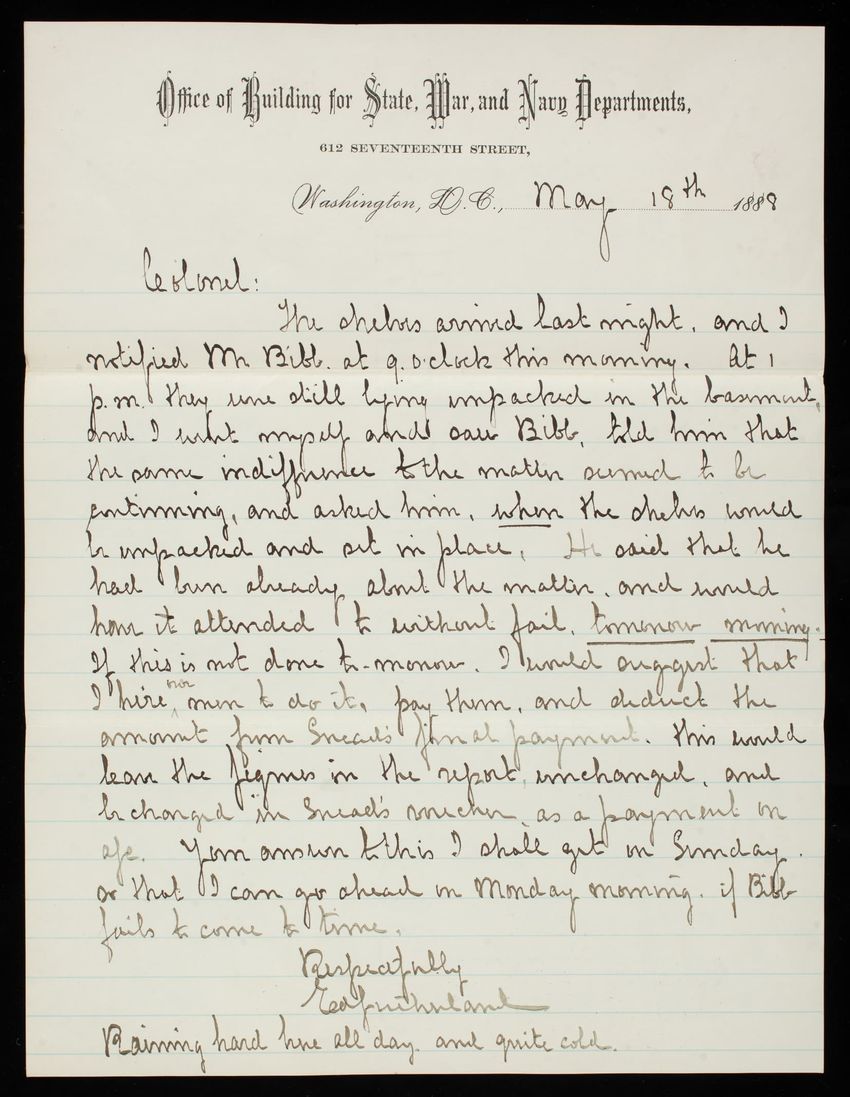 Office of Building for State, War, and Navy Departments,
612 SEVENTEENTH STREET,
Washington, D.C., May 18th 1888
Colonel:
The shelves arrived last night, and I
notified Mr Bibb. at 9. o'clock this morning. At 1
p.m. they were still lying unpacked in the basement,
and I went myself and saw Bibb, told him that
the same indifference to the matter seemed to be
continuing, and asked him, when the shelves would
be unpacked and set in place. He said that he
had been already about the matter, and would
have it attended to without fail, tomorrow morning.
If this is not done to-morrow, I would suggest that
I hire, our men to do it, pay them, and deduct the
amount from Snead's final payment. This would
leave the figures in the report, unchanged, and
be changed in Snead's voucher, as a payment on
a/c. Your answer to this I shall get on Sunday,
so that I can go ahead on Monday morning, if Bibb
fails to come to time.
Respectfully
Raining hard here all day, and quite cold.